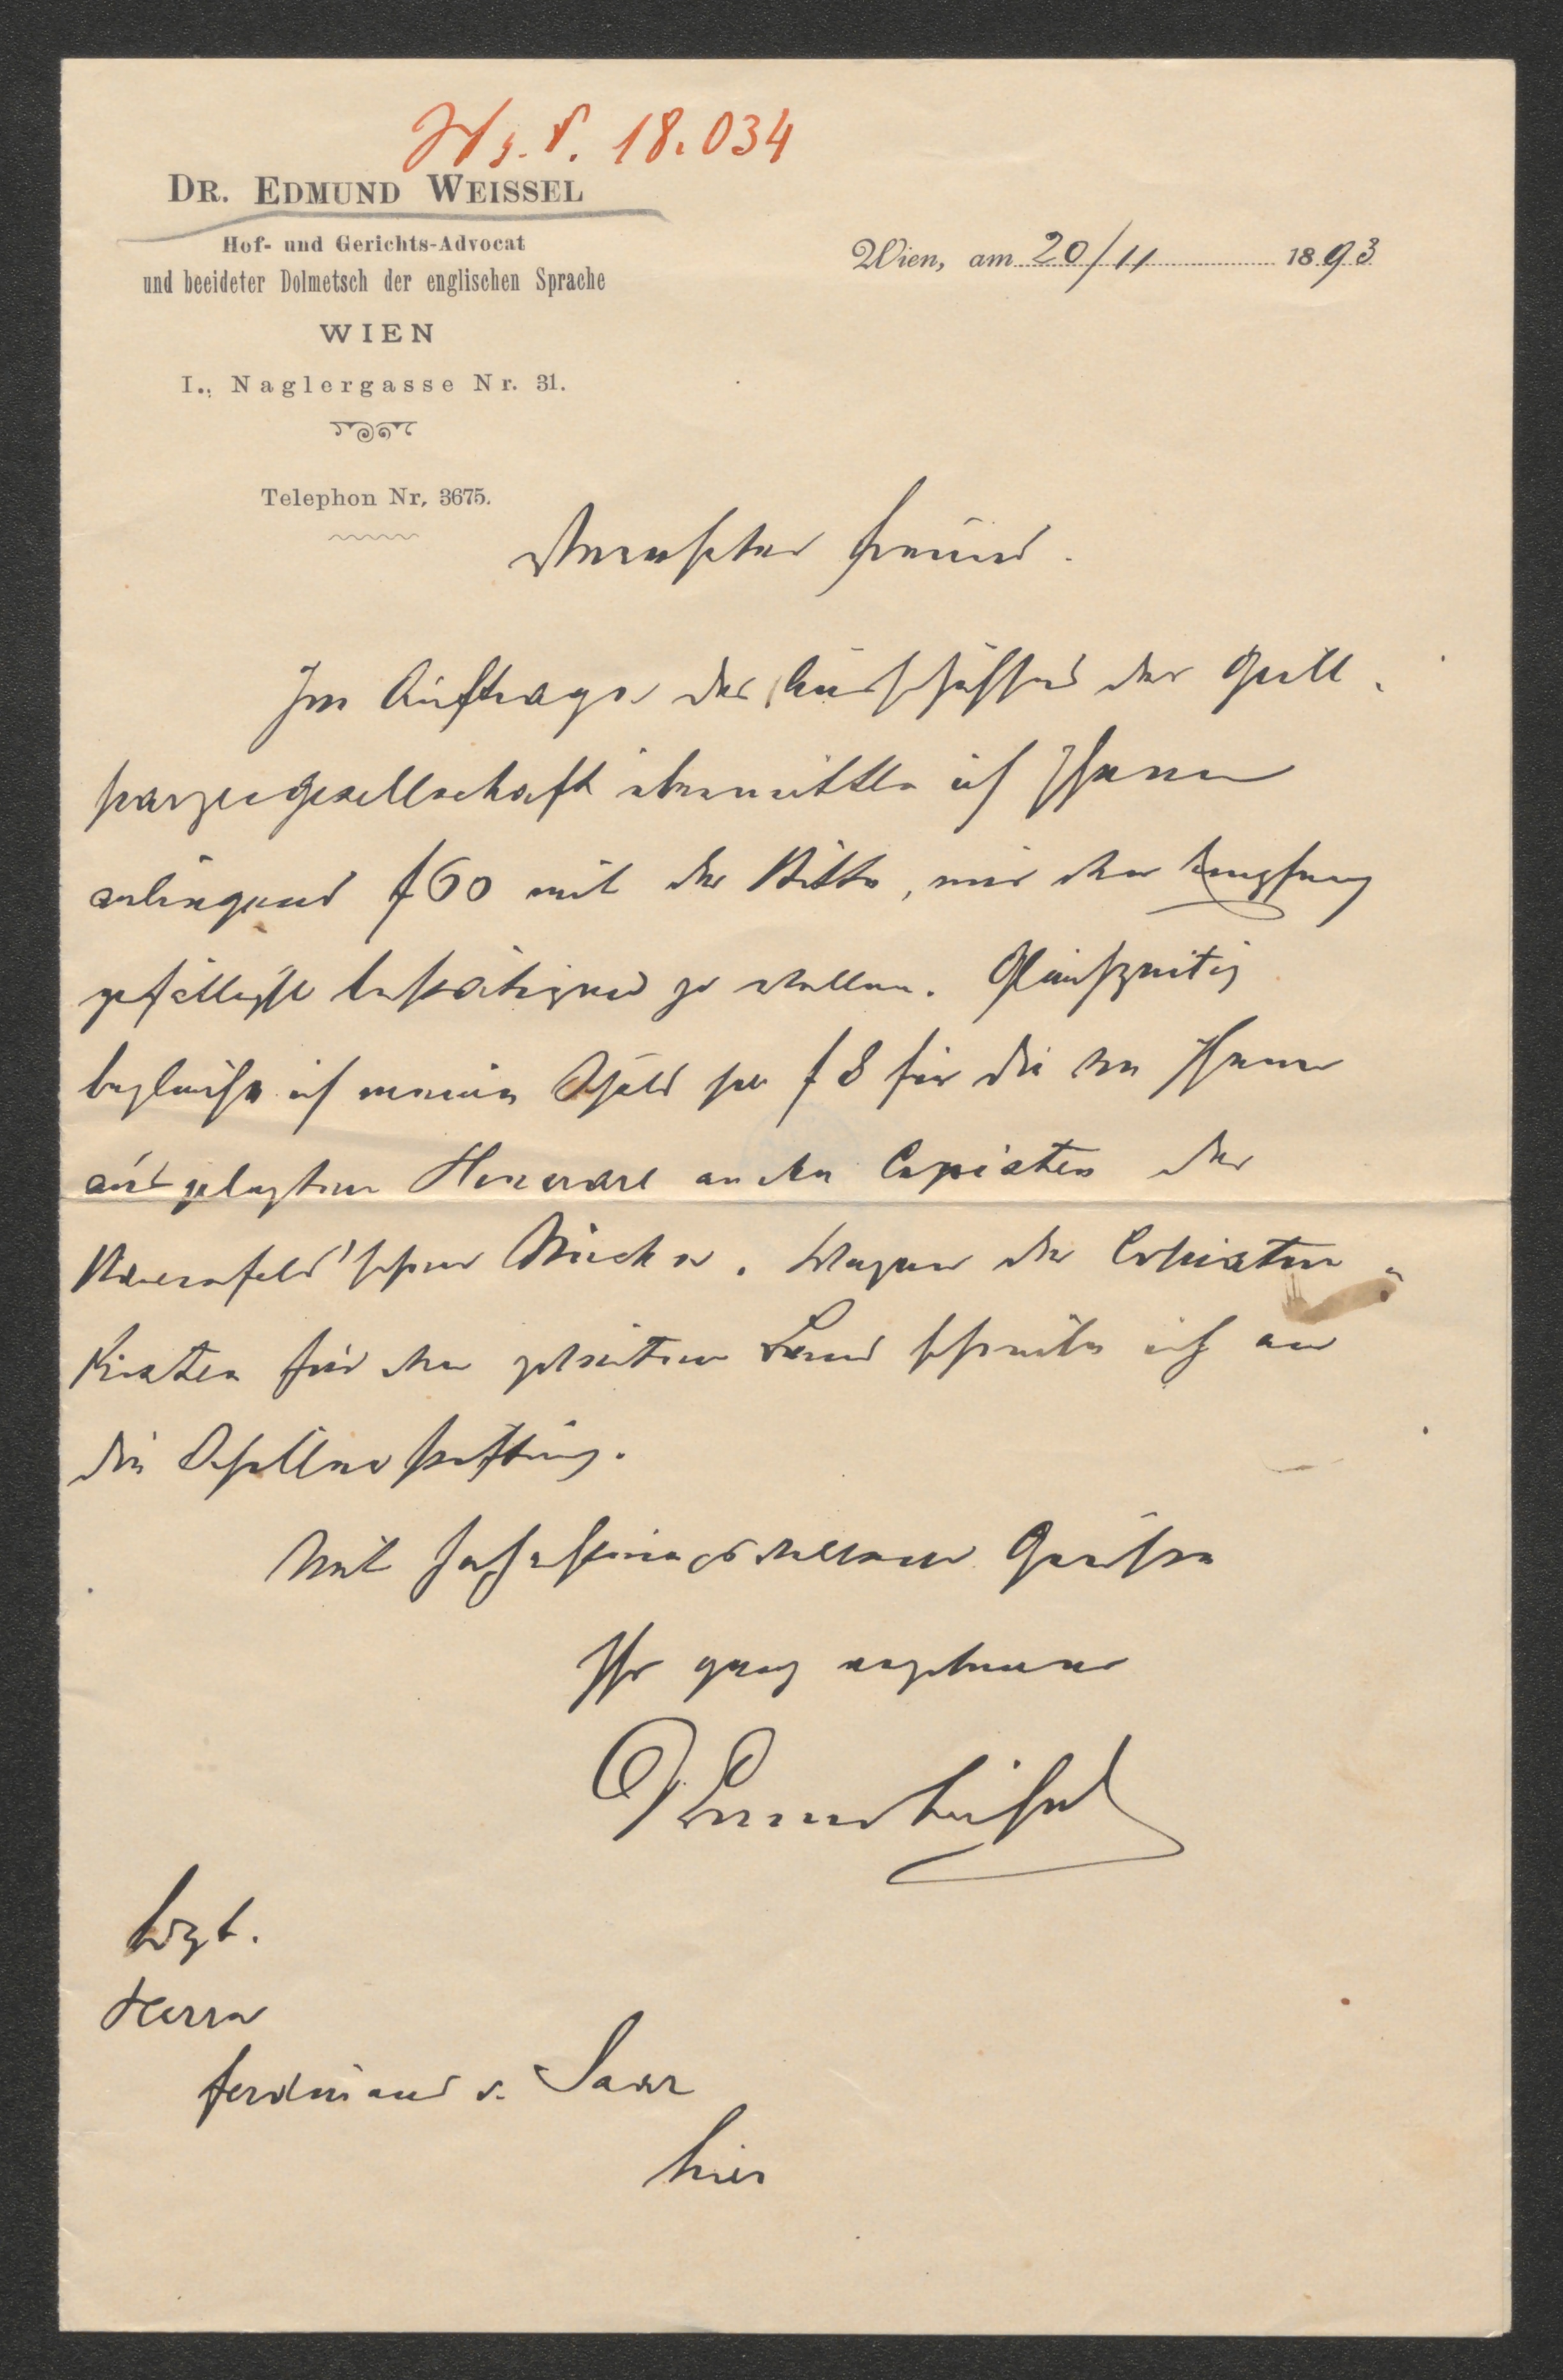 H. I. N. 18.034
DR. EDMUND WEISSEL
Hof- und Gerichts-Advocat
und beeideter Dolmetsch der englischen Sprache
WIEN
I., Naglergasse Nr. 31.
Telephon Nr. 3675.
Wien, am 20/11 1893
Verehrter Freund.
Im Auftrage des Ausschusses der Grill-
parzergesellschaft übermittle ich Ihnen
anliegend f 60 mit der Bitte, mir den Empfang
gefälligst bestätigen zu wollen. Gleichzeitig
begleiche ich meine Schuld per f 8 für die von Ihnen
ausgelegten Honorare an den Copisten der
Bauernfeld'schen Stücke. Wegen der Copiatur-
Kosten für den zweiten Band schreibe ich an
die Schillerstiftung.
Mit hochachtungsvollen Grüßen
Ihr ganz ergebener
Dr Edmund Weissel
Herrn
Ferdinand v. Saar
hier